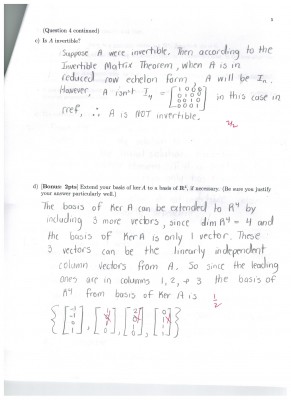 8
(Question 4 continued)
c) Is A invertible?
Suppose A were invertible. Then according to the
Invertible Matrix Theorem, when A is in
reduced row echelon form, A will be Iₙ.
However, A isn't I₄ = [1 0 0 0
0 1 0 0
0 0 1 0
0 0 0 1] in this case in
rref, ∴ A is NOT invertible.
2/2
d) [Bonus: 2pts] Extend your basis of ker A to a basis of R⁴, if necessary. (Be sure you justify
your answer particularly well.)
The basis of Ker A can be extended to R⁴ by
including 3 more vectors, since dim R⁴ = 4 and
the basis of Ker A is only 1 vector. These
3 vectors can be the linearly independent
column vectors from A. So since the leading
ones are in columns 1, 2, + 3 the basis of
R⁴ from basis of Ker A is
1/2